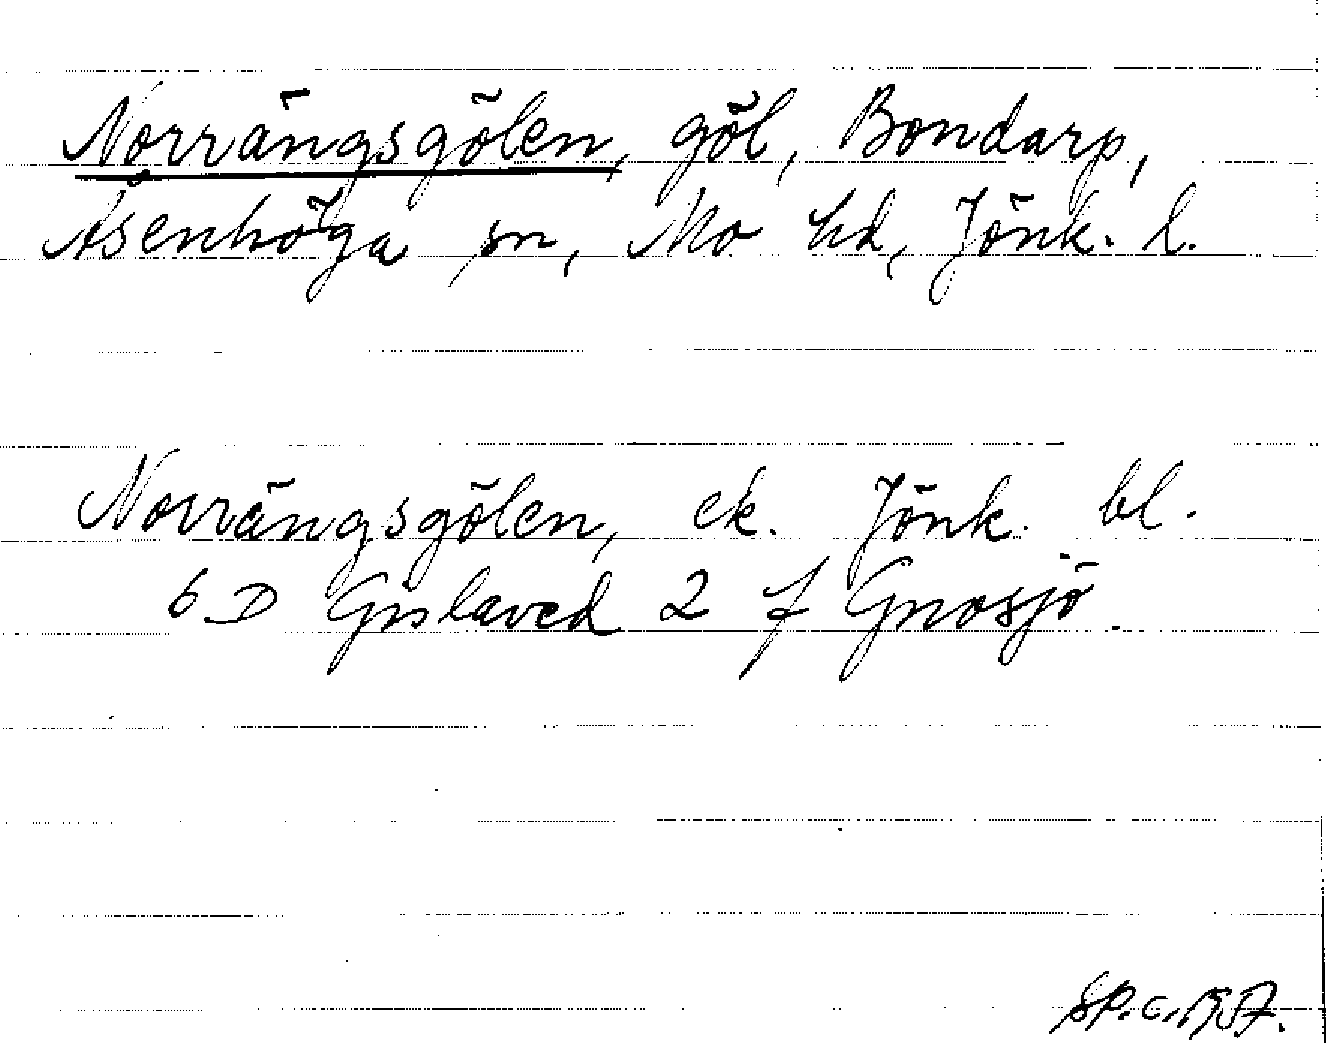 Norrängsgölen, göl, Bondarp,
Åsenhöga sn, Mo hd, Jönk. l.
Norrängsgölen, ek. Jönk. bl.
6 D Gislaved 2 f Gnosjö.